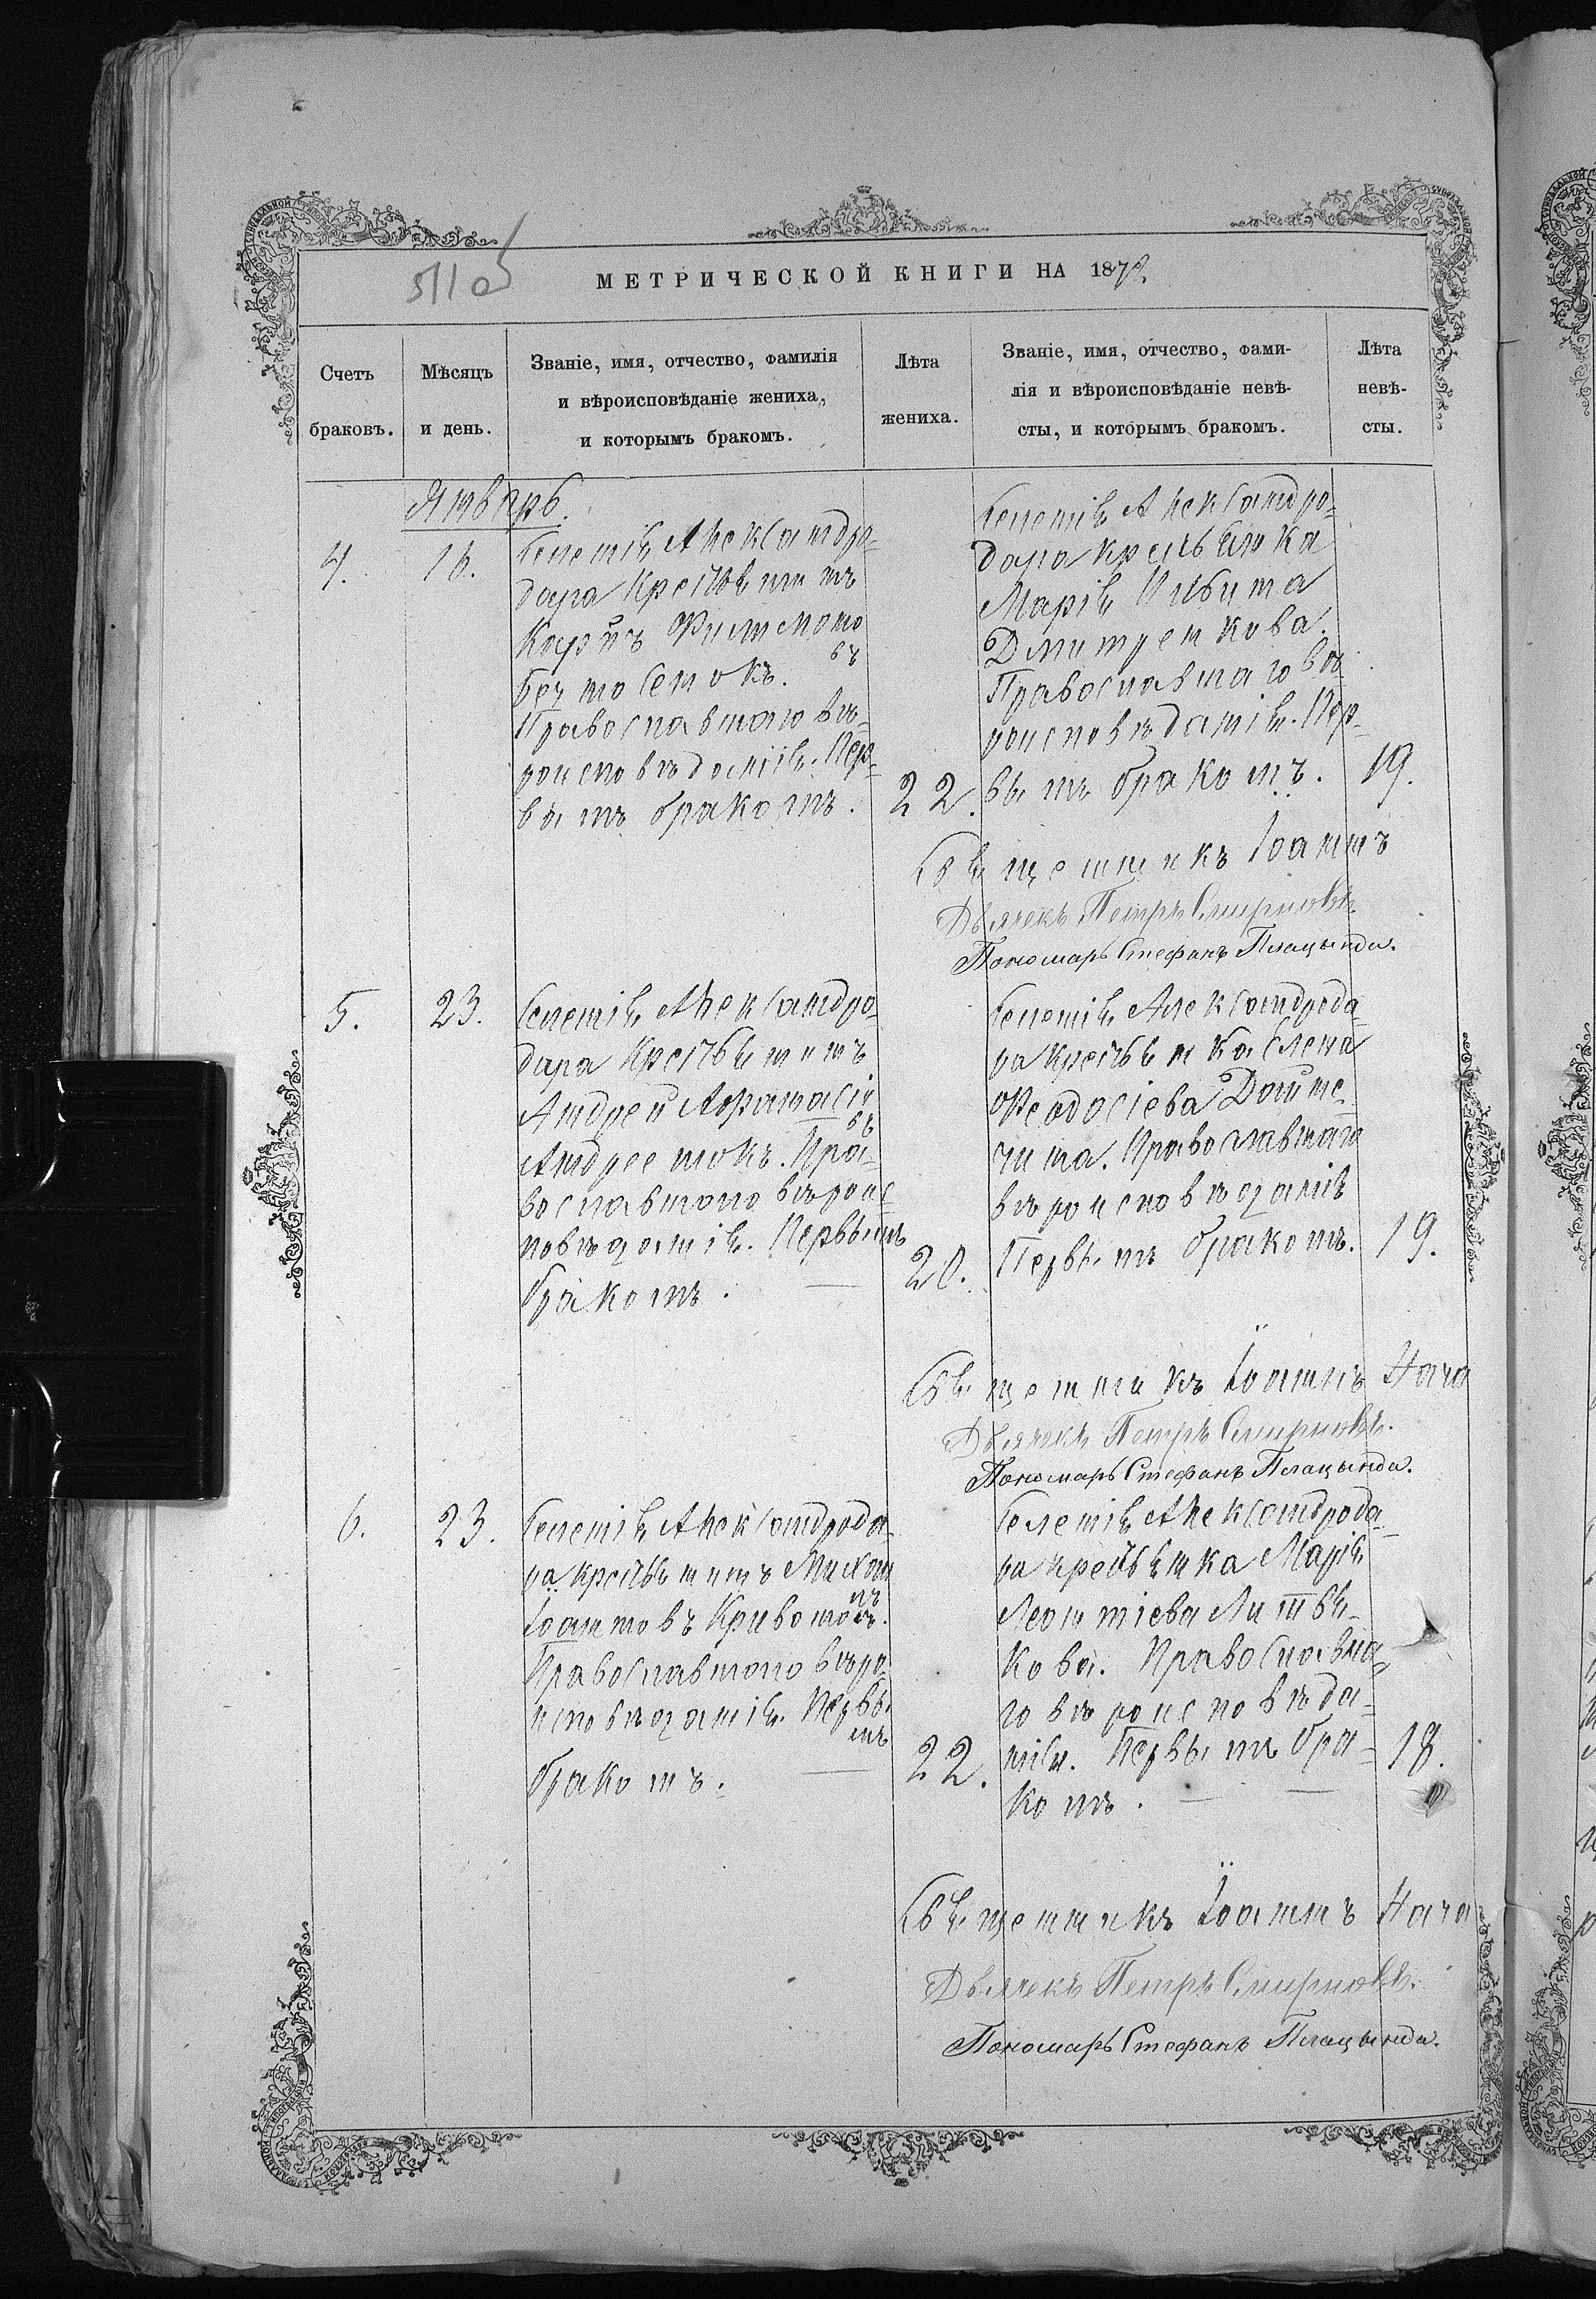 МЕТРИЧЕСКОЙ КНИГИ НА 1878.
Счетъ браковъ.
Мѣсяцъ и день.
Званіе, имя, отчество, фамилія
и вѣроисповѣданіе жениха,
и которымъ бракомъ.
Лѣта жениха.
Званіе, имя, отчество, фами-
лія и вѣроисповѣданіе невѣ-
сты, и которымъ бракомъ.
Лѣта невѣ-
сты.
Январь.
4.
16.
Селенія Александро-
дара Крестьянинъ
Филимоно
въ
Православнаго вѣ-
роисповѣданія. Пер-
вымъ бракомъ.
22.
Селенія Александро-
дара крестьянка
Марія Никитина
Дмитренкова.
Православнаго вѣ
роисповѣданія. Пер-
вымъ бракомъ.
19.
Священникъ Іоаннъ
Дьячекъ Петръ Смирновъ.
Пономарь Стефанъ Плацында.
5.
23.
Селенія Александро-
дара Крестьянинъ
Андрей Афанасіе
въ
Андреенокъ. Пра-
вославнаго вѣроис
повѣданія. Первымъ
бракомъ.
20.
Селенія Александрода-
ра Крестьянка Елена
Феодосіева
Православнаго
вѣроисповѣданія
Первымъ бракомъ.
19.
Священникъ Іоаннъ
Дьячекъ Петръ Смирновъ.
Пономарь Стефанъ Плацында.
6.
23.
Селенія Александрода-
ра крестьянинъ Михаил
ъ
Іоанновъ
Православнаго вѣро
исповѣданія. Первы
мъ
бракомъ.
22.
Селенія Александрода-
ра крестьянка Марія
Леонтіева Литвя-
кова. Православна-
го вѣроисповѣда-
нія. Первымъ бра-
комъ.
18.
Священникъ Іоаннъ
Дьячекъ Петръ Смирновъ.
Пономарь Стефанъ Плацында.